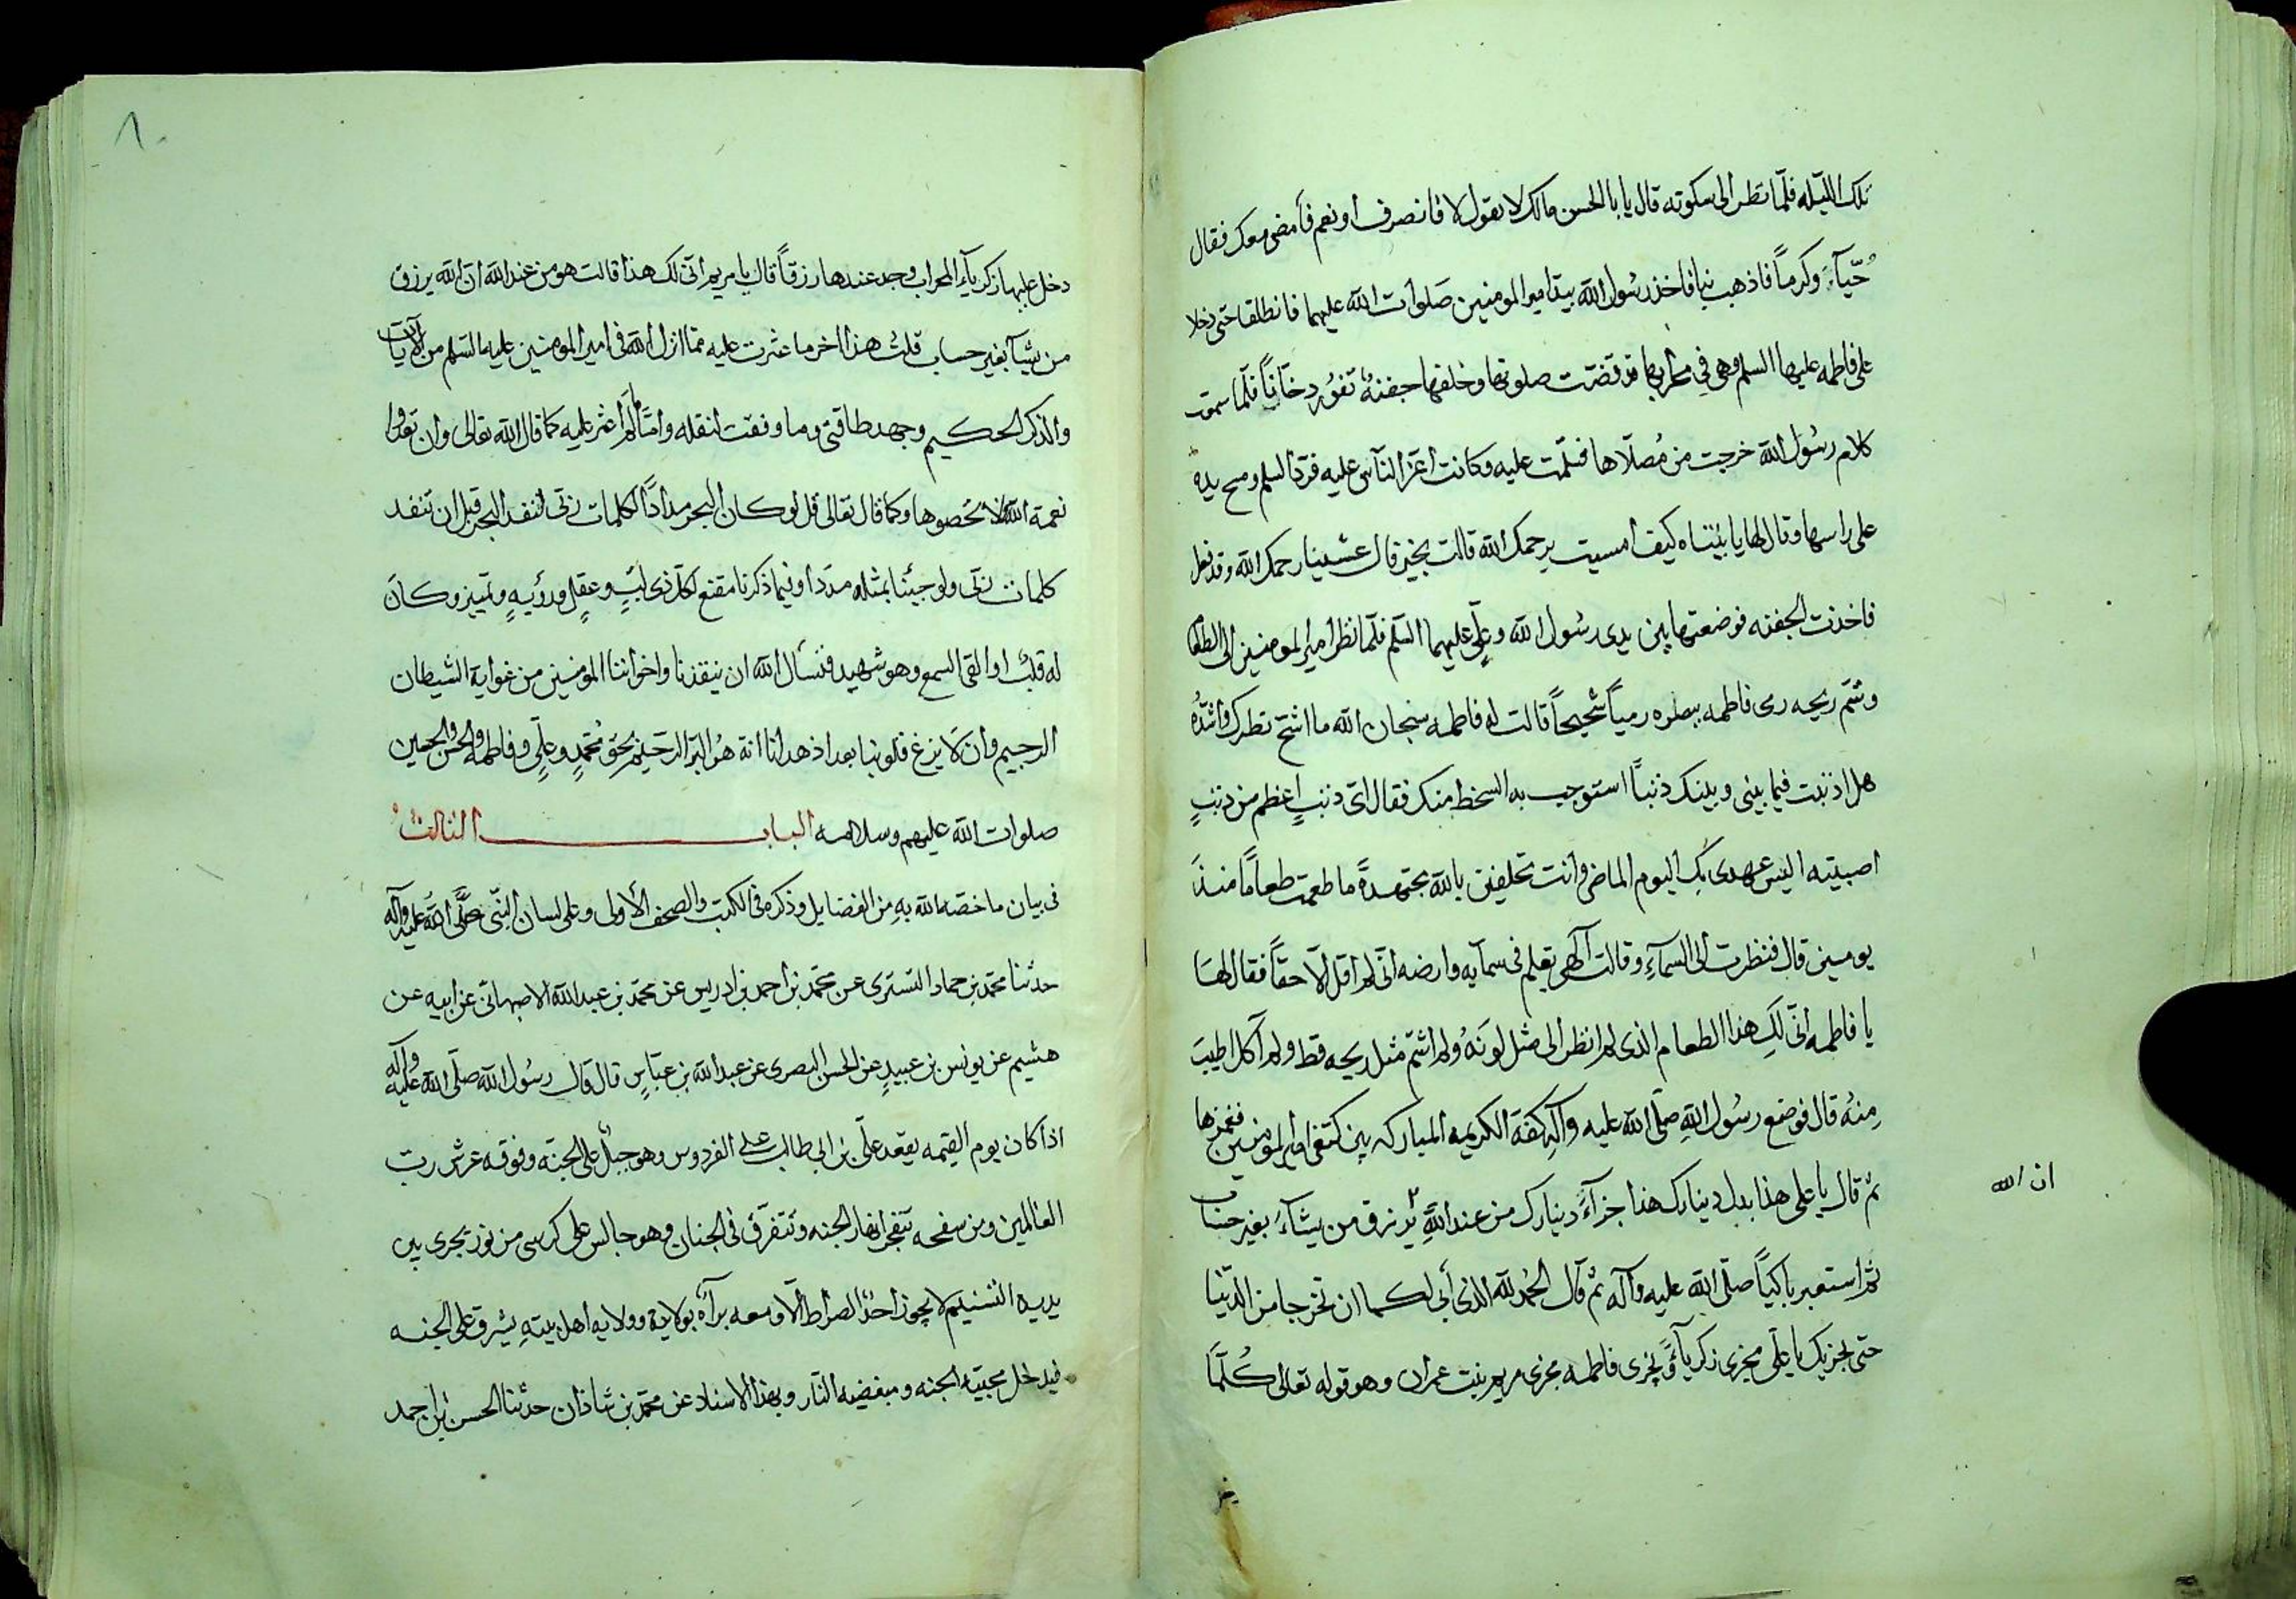 تلك الليله فلمّا نظر الى سكوته قال يابا الحسن مالك لا تقول لا فانصرف او نعم فأمضى معك فقال
حيّآءً وكرماً فاذهب بنا فاخذ رسُول الله بيد امير المومنين صَلوات الله عليهما فانطلقا حتى دخلا
على فاطمه عليها السلم وهى في محرابها قد قضت صلوتها وخلفها جفنةٌ تفوُر دخاناً فلمّا سمعت
كلام رسُول الله خرجت من مُصلّاها فسلّمت عليه وكانت اعزّ النّاس عليه فردّ السلم ومسح بيده
على راسها وقال لها يا بنتاه كيف امسيت يرحمك الله قالت بخير قال عشينا رحمك الله وقد فعل
فاخذت الجفنه فوضعتها بين يدى رسُول الله وعلىّ عليهما السّلم فلمّا نظر امير المومنين الى الطعام
وشمّ ريحه رمى فاطمه ببصره رمياً شحيحاً قالت له فاطمه سبحان الله ما اشحّ نظرك واشدّهُ
هل اذنبت فيما بينى وبينك ذنباً استوجب به السخط منك فقال اىّ ذنبٍ اعظم من ذنبٍ
اصبتيه اليس عهدى بكِ اليوم الماضى وانت تحلفين بالله مجتهدةً ما طعمت طعاماً منذ
يومين قال فنظرت الى السمآءِ وقالت آلهى يعلم فى سمآيه وارضه انّى لم اقل الّا حقاً فقال لهَا
يا فاطمه انّى لكِ هذا الطعام الذى لم انظر الى مثل لونَهُ ولم اشمّ مثل ريحه قط ولم آكل اطيبَ
مِنهُ قال فوضع رسُول اللهِ صلّى الله عليه وآله كفّه الكريمه المباركه بين كتفى امير المومنين فغمزها
ثم قال يا على هذا بدل دينارك هذا جزآءُ دينارك من عند اللهِ يُرزق من يشآءُ بغير حساب
ان الله
ثم استعبر باكياً صلّى الله عليه وآله ثم قال الحمُد لله الذى أبى لكما ان تخرجا من الدّنيا
حتى يجزيك يا علىّ مجرى زكريّآءَ ويجرى فاطمه مجرى مريم بنت عمران وهو قوله تعالى كُلّمَا
٨٠
دخل عليها زكريآءُ المحراب وجد عندها رزقاً قال يا مريم انّى لك هذا قالت هو من عند الله ان الله يرزق
من يشآ بغير حساب قلتُ هذا اخر ما عثرت عليه ممّا انزل الله فى امير المومنين عليه السّلم من الآيات
والذكر الحكيم وجهد طاقتى وما وفقت لنقله وامّا ما لم اعثر عليه كما قال الله تعالى وان تعدّوا
نعمة الله لا تحصوها وكما قال تعالى قل لو كان البحر مداداً لكلمات ربّى لنفد البحر قبل ان تنفد
كلمات ربّى ولو جيئنا بمثله مدداً وفيما ذكرنا مقنع لكلّ ذى لبٍّ وعقلٍ ورؤيهٍ وتمييز وكان
له قلب او القى السمع وهو شهيد فنسأل الله ان ينقذنا واخواننا المومنين من غواية الشيطان
الرجيم وان لَا يزغ قلوبنا بعد اذ هدانا انه هُو البرّ الرحيم بحق مُحمّدٍ وعلىٍّ وفاطمه والحسن والحسين
صلوات الله عليهم وسلامه الباب الثالث
فى بيان ما خصّه الله بهِ من الفضايل وذكره فى الكتب والصحف الأولى وعلى لسان النبّى صَلَّى اللهُ عليه وآله
حدثنا محمّد بن حماد التسترى عن محمّد بن احمد بن ادريس عن محمّد بن عبد الله الاصبهانى عن ابيه عن
هشيم عن يونس بن عبيدٍ عن الحسن البصرى عن عبد الله بن عبّاسٍ قال قال رسُول الله صلّى الله عليه وآله
اذا كان يوم القيمه يقعد علىّ بن ابى طالب على الفردوس وهو جبلٌ على الجنّه وفوقه عرش ربّ
العالمين ومن سفحه تتفجر انهار الجنه وتتفرّق فى الجنان وهو جالس على كرسى من نور يجرى بين
يديه التسنيم لا يجوز احدٌ الصراط الّا ومعه برآةٌ بولايته وولايه اهل بيتهِ يشرق على الجنه
فيدخل محبيّه الجنه ومبغضيه النّار وبهذا الاسناد عن محمّد بن شاذان حدّثنا الحسن بن احمد